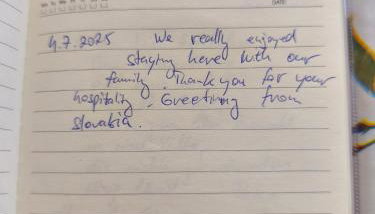 DATE:
4.7.2025 We really enjoyed
staying here with our
family. Thank you for your
hospitality. Greeting from
Slovakia.